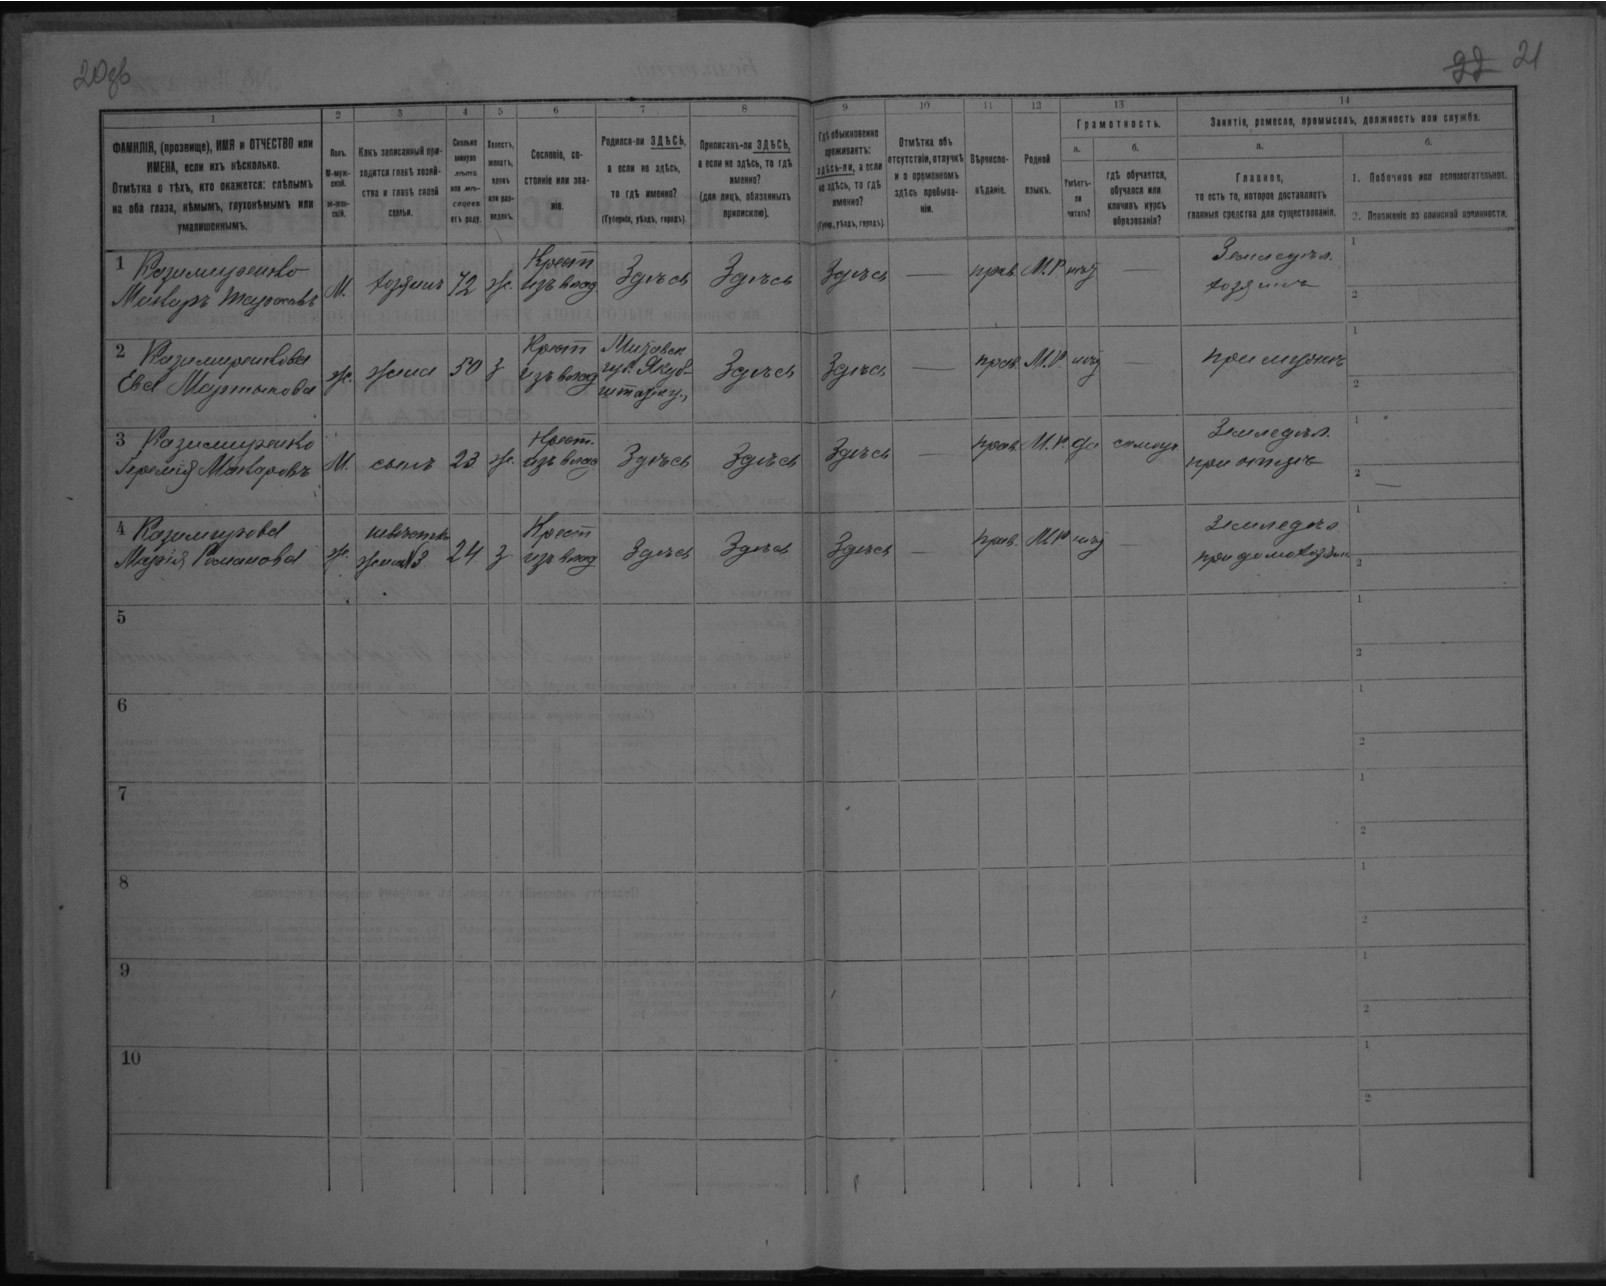 20об
22 21
1 2 3 4 5 6 7 8 9 10 11 12 13 14
ФАМИЛІЯ, (прозвище), ИМЯ и ОТЧЕСТВО или
ИМЕНА, если ихъ нѣсколько.
Отмѣтка о тѣхъ, кто окажется: слѣпымъ
на оба глаза, нѣмымъ, глухонѣмымъ или
умалишеннымъ.
Полъ.
М-муж-
ской.
Ж-жен-
скій.
Какъ записанный при-
ходится главѣ хозяй-
ства и главѣ своей
семьи.
Сколько
минуло
лѣтъ
или мѣ-
сяцевъ
отъ роду.
Холостъ,
женатъ,
вдовъ
или раз-
веденъ.
Сословіе, со-
стояніе или зва-
ніе.
Родился-ли ЗДѢСЬ,
а если не здѣсь,
то гдѣ именно?
(Губернія, уѣздъ, городъ).
Приписанъ-ли ЗДѢСЬ,
а если не здѣсь, то гдѣ
именно?
(для лицъ, обязанныхъ
припискою).
Гдѣ обыкновенно
проживаетъ:
здѣсь-ли, а если
не здѣсь, то гдѣ
именно?
(Губерн., уѣздъ, городъ).
Отмѣтка объ
отсутствіи, отлучкѣ
и о временномъ
здѣсь пребыва-
ніи.
Вѣроиспо-
вѣданіе.
Родной
языкъ.
Грамотность.
а.
Умѣетъ-
ли
читать?
б.
гдѣ обучается,
обучался или
кончилъ курсъ
образованія?
Занятія, ремесло, промыселъ, должность или служба.
а.
Главное,
то есть то, которое доставляетъ
главныя средства для существованія.
б.
1. Побочное или вспомогательное.
2. Положеніе по воинской повинности.
1 Казимиренко
Макаръ Тарасовъ М. хозяинъ 72 ж. Крест
изъ влад Здѣсь Здѣсь Здѣсь — прав. М.Р нѣтъ — Земледѣл.
хозяинъ
1
2
2 Казимиренкова
Ева Мартынова ж. жена 50 з Крест
изъ влад Здѣсь Здѣсь — прав. М.Р нѣтъ — при мужѣ
1
2
3 Казимиренко
Іеремія Макаровъ М. сынъ 23 ж. Крест.
изъ влад Здѣсь Здѣсь Здѣсь — прав. М.Р да Земледѣл.
при отцѣ
1
2 —
4 Казимирова
Марія Романова ж. невѣстка
жена 3 24 з Крест
изъ влад Здѣсь Здѣсь Здѣсь — прав. М.Р нѣтъ — Земледѣл
при домохозяин
1
2
5
1
2
6
1
2
7
1
2
8
1
2
9
1
2
10
1
2